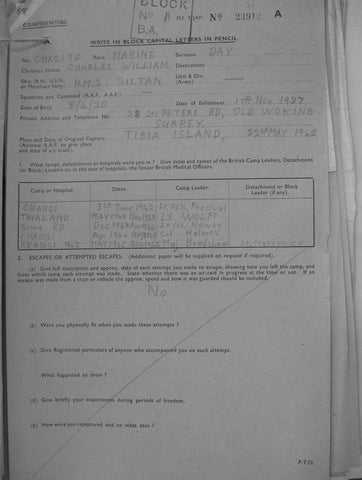 BLOCK
No 11 M.I. 9/JAP/ No 23912 A
B.A.
CONFIDENTIAL
WRITE IN BLOCK CAPITAL LETTERS IN PENCIL
No. Rank MARINE Surname DAY
Christian Names CHARLES WILLIAM Decorations
Ship (R.N., U.S.N. or Merchant Navy) H.M.S. SULTAN Unit & Div. (Army)
Squadron and Command (R.A.F., A.A.F.)
Date of Birth 5/6/20 Date of Enlistment 17th Nov 1937
Private Address and Telephone No. 28 St: PETERS RD, OLD WOKING
SURREY.
Place and Date of Original Capture TIBIA ISLAND, 22nd MAY 1942
(Aircrew R.A.F. to give place
and date of a/c crash).
1. What camps, detachments or hospitals were you in? Give dates and names of the British Camp Leaders, Detachment
(or Block) Leaders or, in the case of hospitals, the Senior British Medical Officers.
Camp or Hospital. Dates. Camp Leader. Detachment or Block Leader (if any).
CHANGI 3rd June 1942 Lt Gen Percival
THIALAND MAY 1943 Nov 1943 Lt. WOLFF
Sime RD Dec 1943 Apr 1944 Lt Col Newey
CHANGI Apr 1944 Col. Holmes
KRANGI No2 MAY 1945 Maj Bradshaw
2. ESCAPES OR ATTEMPTED ESCAPES. (Additional paper will be supplied on request if required).
(a) Give full description and approx. date of each attempt you made to escape, showing how you left the camp, and
from which camp each attempt was made. State whether there was an air-raid in progress at the time or not. If an
escape was made from a train or vehicle the approx. speed and how it was guarded should be included.
No
(b) Were you physically fit when you made these attempts?
(c) Give Regimental particulars of anyone who accompanied you on each attempt.
What happened to them?
(d) Give briefly your experiences during periods of freedom.
(e) How were you recaptured and on what date?
P.T.O.